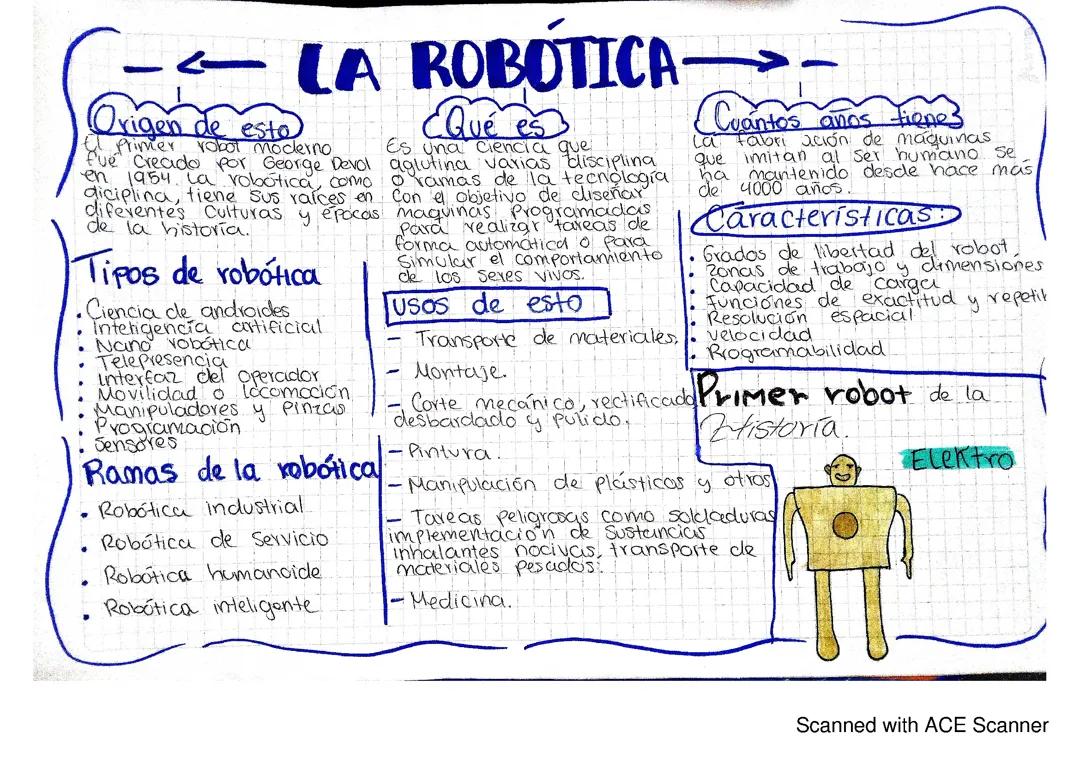 LA ROBÓTICA
Origen de esto
El primer robot moderno
fué creado por George Devol
en 1954. La robótica, como
diciplina, tiene sus raíces en
diferentes culturas y épocas
de la historia.
Tipos de robótica
• Ciencia de androides
• Inteligencia artificial
• Nano robótica
• Telepresencia
• Interfaz del operador
• Movilidad o locomoción
• Manipuladores y pinzas
• Programación
• Sensores
Ramas de la robótica
• Robótica industrial
• Robótica de servicio
• Robótica humanoide
• Robótica inteligente
Qué es
Es una ciencia que
aglutina varias disciplina
o ramas de la tecnología
con el objetivo de diseñar
maquinas programadas
para realizar tareas de
forma automática o para
simular el comportamiento
de los seres vivos.
usos de esto
- Transporte de materiales.
- Montaje.
- Corte mecánico, rectificado
desbardado y pulido.
- Pintura.
- Manipulación de plásticos y otros
- Tareas peligrosas como soldaduras
implementación de sustancias
inhalantes nocivas, transporte de
materiales pesados.
- Medicina.
Cuántos años tiene?
La fabri ación de máquinas
que imitan al ser humano se
ha mantenido desde hace más
de 4000 años.
Características:
• Grados de libertad del robot.
• Zonas de trabajo y dimensiones
• Capacidad de carga
• Funciónes de exactitud y repetit
• Resolución espacial
• Velocidad
• Programabilidad
Primer robot de la
Historia.
Elektro
Scanned with ACE Scanner